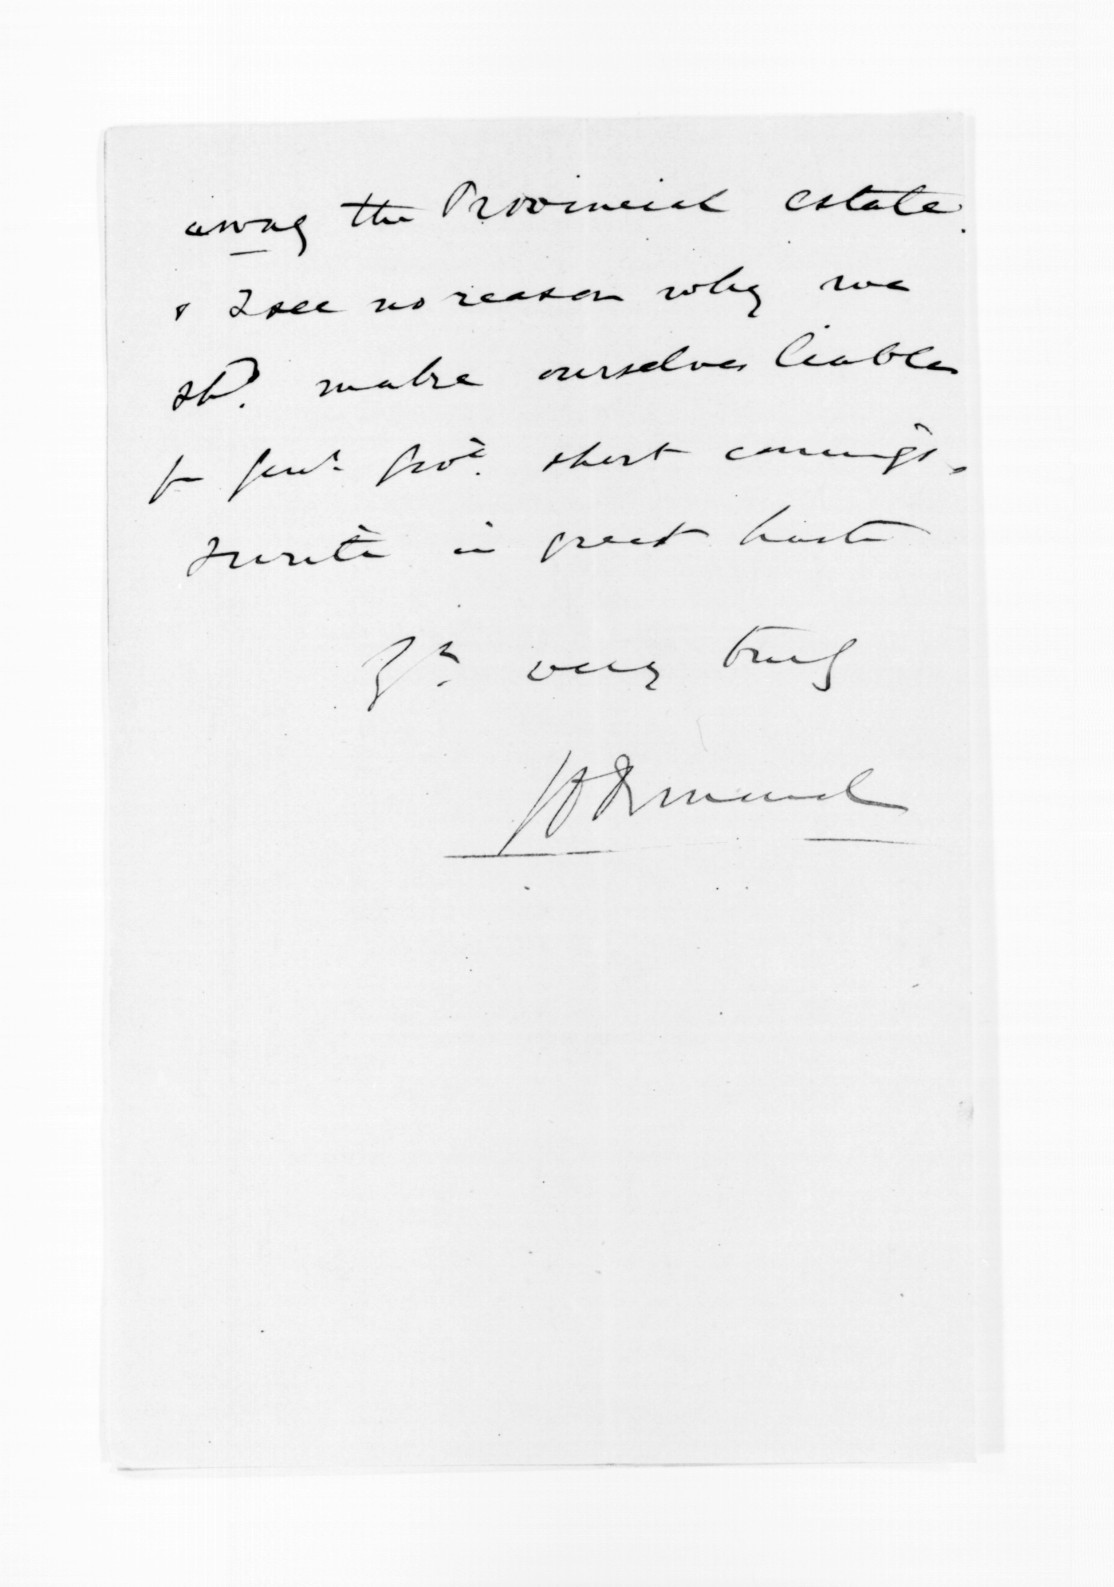 away the Provincial estate.
& I see no reason why we
shd. make ourselves liable
for Genl. Govt. short comings.
I write in great haste
Yrs. very truly
J D Ormond